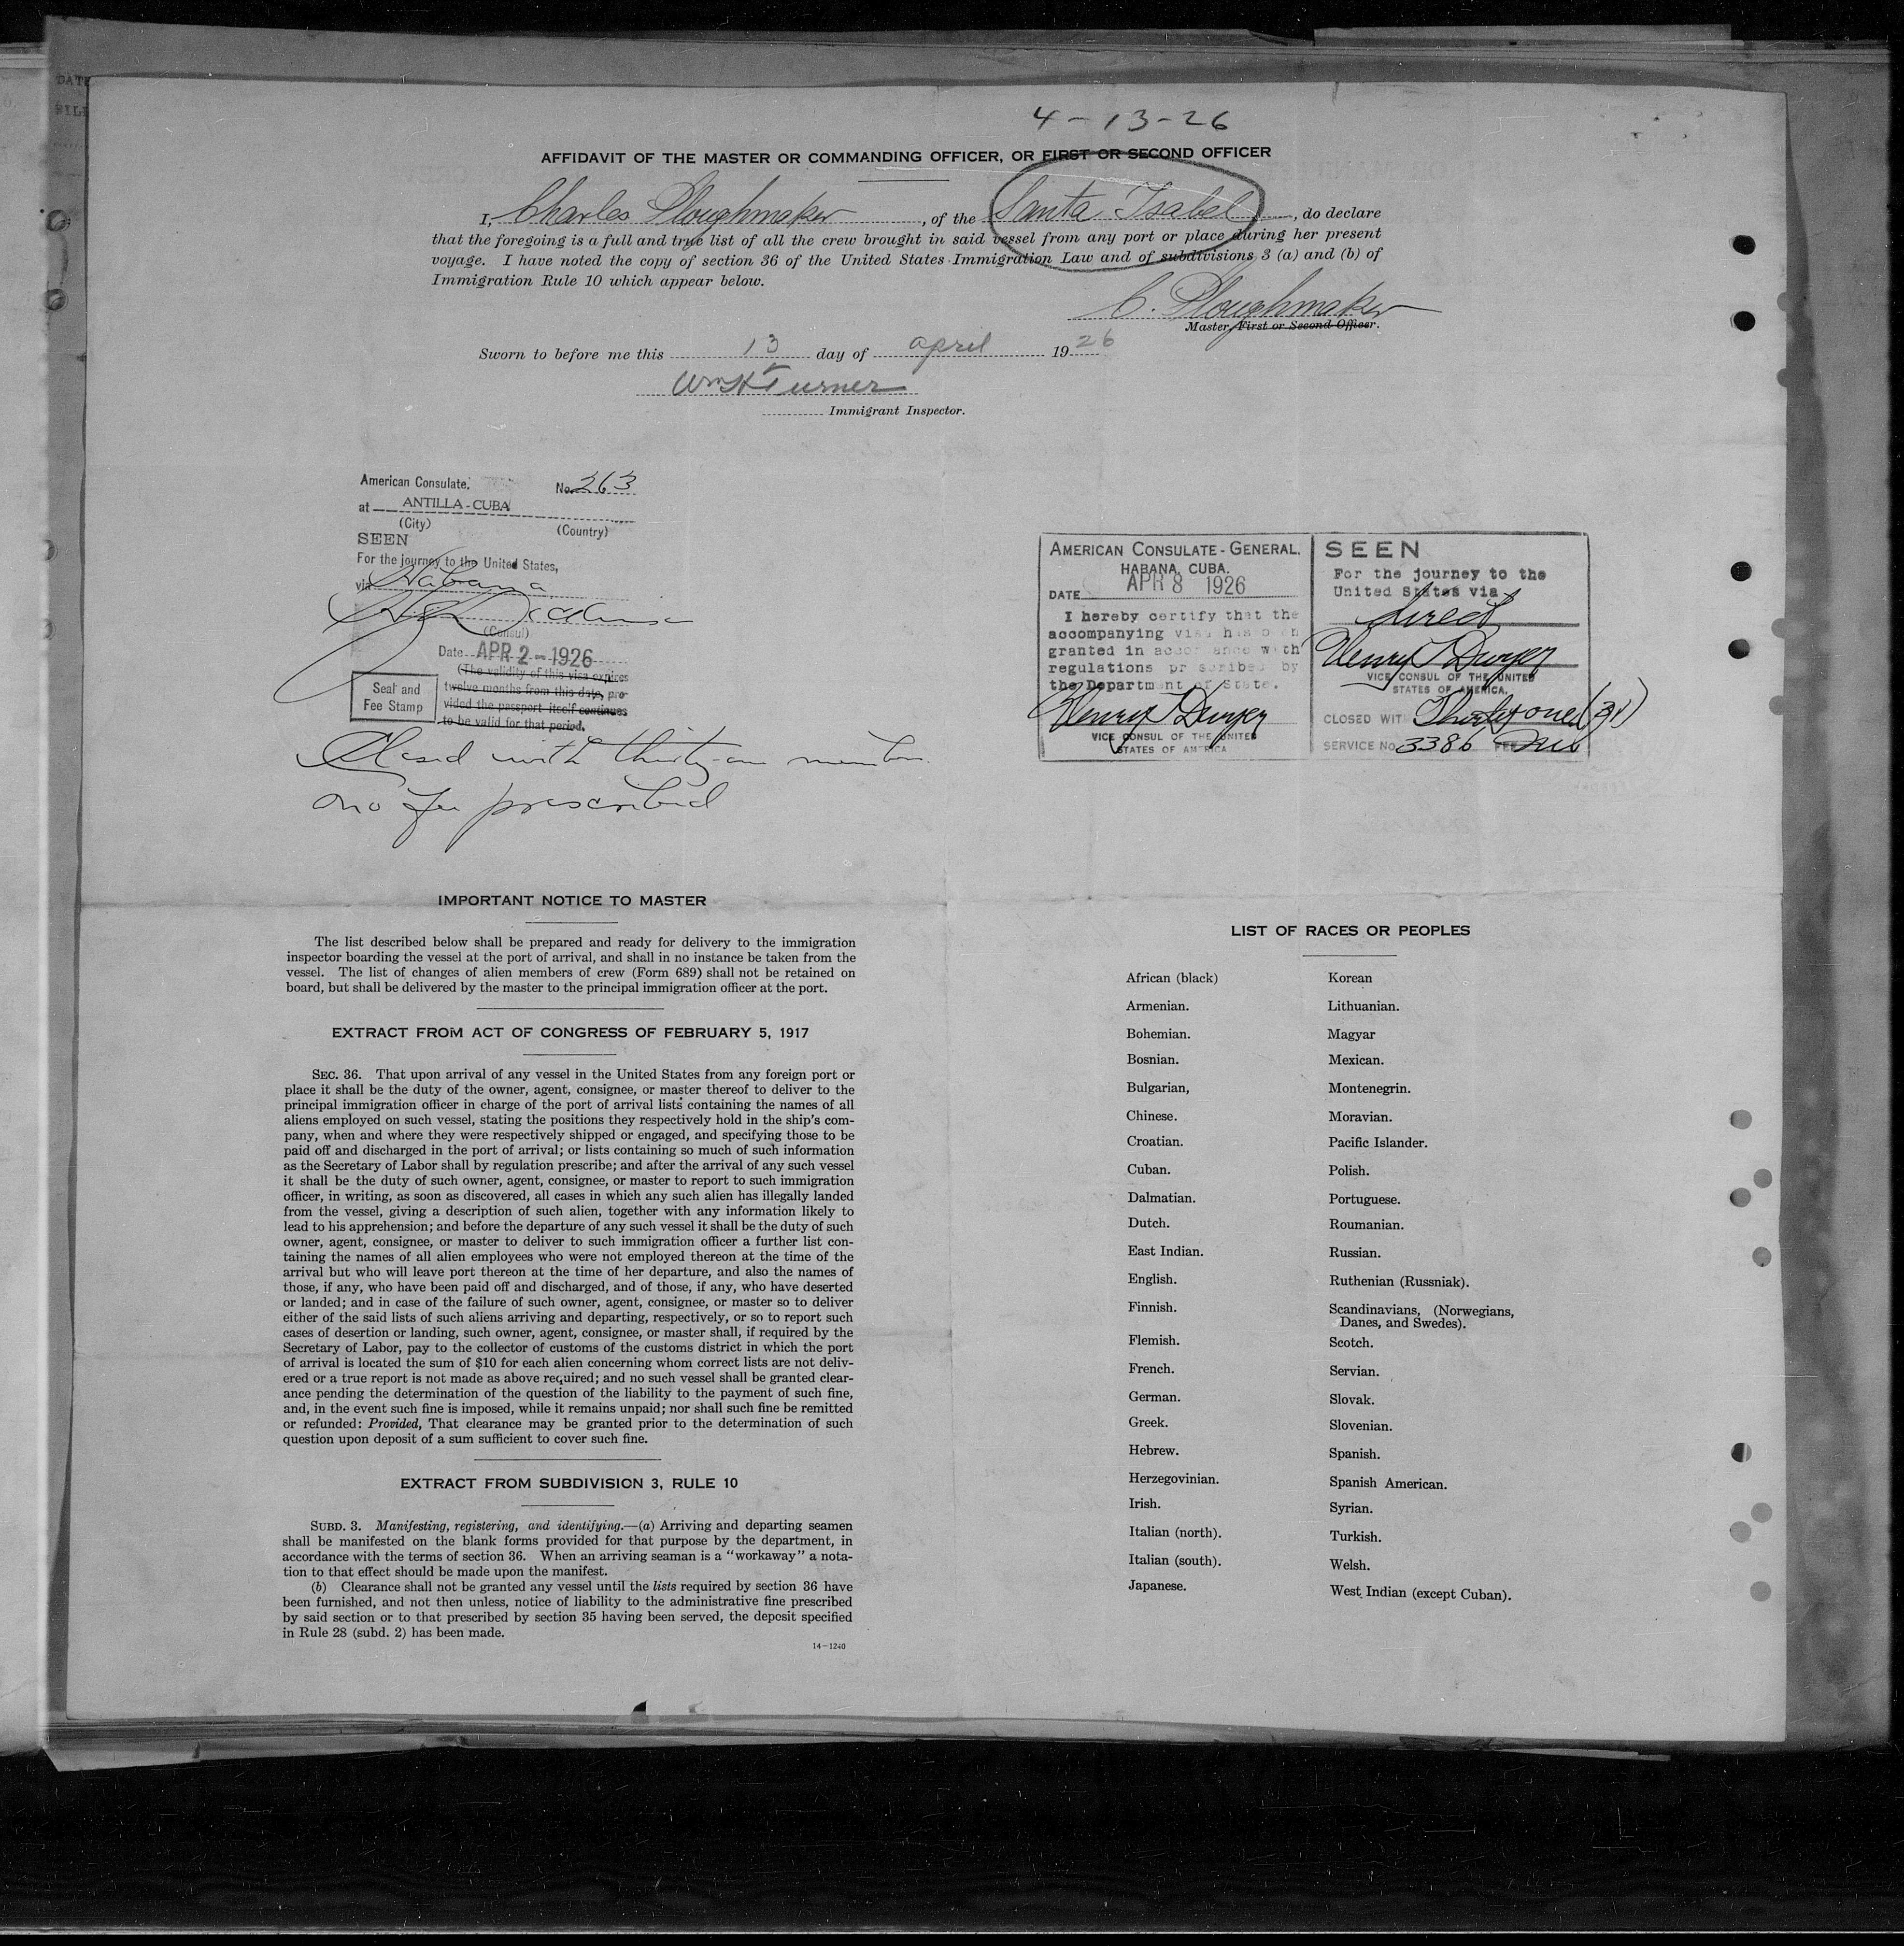 DATE
4-13-26
AFFIDAVIT OF THE MASTER OR COMMANDING OFFICER, OR FIRST OR SECOND OFFICER
I, Charles Ploughmaker, of the Santa Isabel, do declare
that the foregoing is a full and true list of all the crew brought in said vessel from any port or place during her present
voyage. I have noted the copy of section 36 of the United States Immigration Law and of subdivisions 3 (a) and (b) of
Immigration Rule 10 which appear below.
C. Ploughmaker
Master, First or Second Officer.
Sworn to before me this 13 day of april 1926
Wm K Turner
Immigrant Inspector.
American Consulate. No. 263
at ANTILLA-CUBA
(City) (Country)
SEEN
For the journey to the United States,
via Habana
(Consul)
Date APR 2-1926
(The validity of this visa expires
twelve months from this date, pro-
vided the passport itself continues
to be valid for that period.
Seal and
Fee Stamp
Closed with thirty-one members
no fee prescribed
AMERICAN CONSULATE-GENERAL.
HABANA, CUBA.
DATE APR 8 1926
I hereby certify that the
accompanying visa has been
granted in accordance with
regulations prescribed by
the Department of State.
Henry T Dwyer
VICE CONSUL OF THE UNITED
STATES OF AMERICA
SEEN
For the journey to the
United States via
direct
Henry T Dwyer
VICE CONSUL OF THE UNITED
STATES OF AMERICA.
CLOSED WITH Thirty one (31)
SERVICE No. 3386 FEE
IMPORTANT NOTICE TO MASTER
The list described below shall be prepared and ready for delivery to the immigration
inspector boarding the vessel at the port of arrival, and shall in no instance be taken from the
vessel. The list of changes of alien members of crew (Form 689) shall not be retained on
board, but shall be delivered by the master to the principal immigration officer at the port.
EXTRACT FROM ACT OF CONGRESS OF FEBRUARY 5, 1917
SEC. 36. That upon arrival of any vessel in the United States from any foreign port or
place it shall be the duty of the owner, agent, consignee, or master thereof to deliver to the
principal immigration officer in charge of the port of arrival lists containing the names of all
aliens employed on such vessel, stating the positions they respectively hold in the ship's com-
pany, when and where they were respectively shipped or engaged, and specifying those to be
paid off and discharged in the port of arrival; or lists containing so much of such information
as the Secretary of Labor shall by regulation prescribe; and after the arrival of any such vessel
it shall be the duty of such owner, agent, consignee, or master to report to such immigration
officer, in writing, as soon as discovered, all cases in which any such alien has illegally landed
from the vessel, giving a description of such alien, together with any information likely to
lead to his apprehension; and before the departure of any such vessel it shall be the duty of such
owner, agent, consignee, or master to deliver to such immigration officer a further list con-
taining the names of all alien employees who were not employed thereon at the time of the
arrival but who will leave port thereon at the time of her departure, and also the names of
those, if any, who have been paid off and discharged, and of those, if any, who have deserted
or landed; and in case of the failure of such owner, agent, consignee, or master so to deliver
either of the said lists of such aliens arriving and departing, respectively, or so to report such
cases of desertion or landing, such owner, agent, consignee, or master shall, if required by the
Secretary of Labor, pay to the collector of customs of the customs district in which the port
of arrival is located the sum of $10 for each alien concerning whom correct lists are not deliv-
ered or a true report is not made as above required; and no such vessel shall be granted clear-
ance pending the determination of the question of the liability to the payment of such fine,
and, in the event such fine is imposed, while it remains unpaid; nor shall such fine be remitted
or refunded: Provided, That clearance may be granted prior to the determination of such
question upon deposit of a sum sufficient to cover such fine.
EXTRACT FROM SUBDIVISION 3, RULE 10
SUBD. 3. Manifesting, registering, and identifying.—(a) Arriving and departing seamen
shall be manifested on the blank forms provided for that purpose by the department, in
accordance with the terms of section 36. When an arriving seaman is a "workaway" a nota-
tion to that effect should be made upon the manifest.
(b) Clearance shall not be granted any vessel until the lists required by section 36 have
been furnished, and not then unless, notice of liability to the administrative fine prescribed
by said section or to that prescribed by section 35 having been served, the deposit specified
in Rule 28 (subd. 2) has been made.
14-1240
LIST OF RACES OR PEOPLES
African (black)
Armenian.
Bohemian.
Bosnian.
Bulgarian,
Chinese.
Croatian.
Cuban.
Dalmatian.
Dutch.
East Indian.
English.
Finnish.
Flemish.
French.
German.
Greek.
Hebrew.
Herzegovinian.
Irish.
Italian (north).
Italian (south).
Japanese.
Korean
Lithuanian.
Magyar
Mexican.
Montenegrin.
Moravian.
Pacific Islander.
Polish.
Portuguese.
Roumanian.
Russian.
Ruthenian (Russniak).
Scandinavians, (Norwegians,
Danes, and Swedes).
Scotch.
Servian.
Slovak.
Slovenian.
Spanish.
Spanish American.
Syrian.
Turkish.
Welsh.
West Indian (except Cuban).